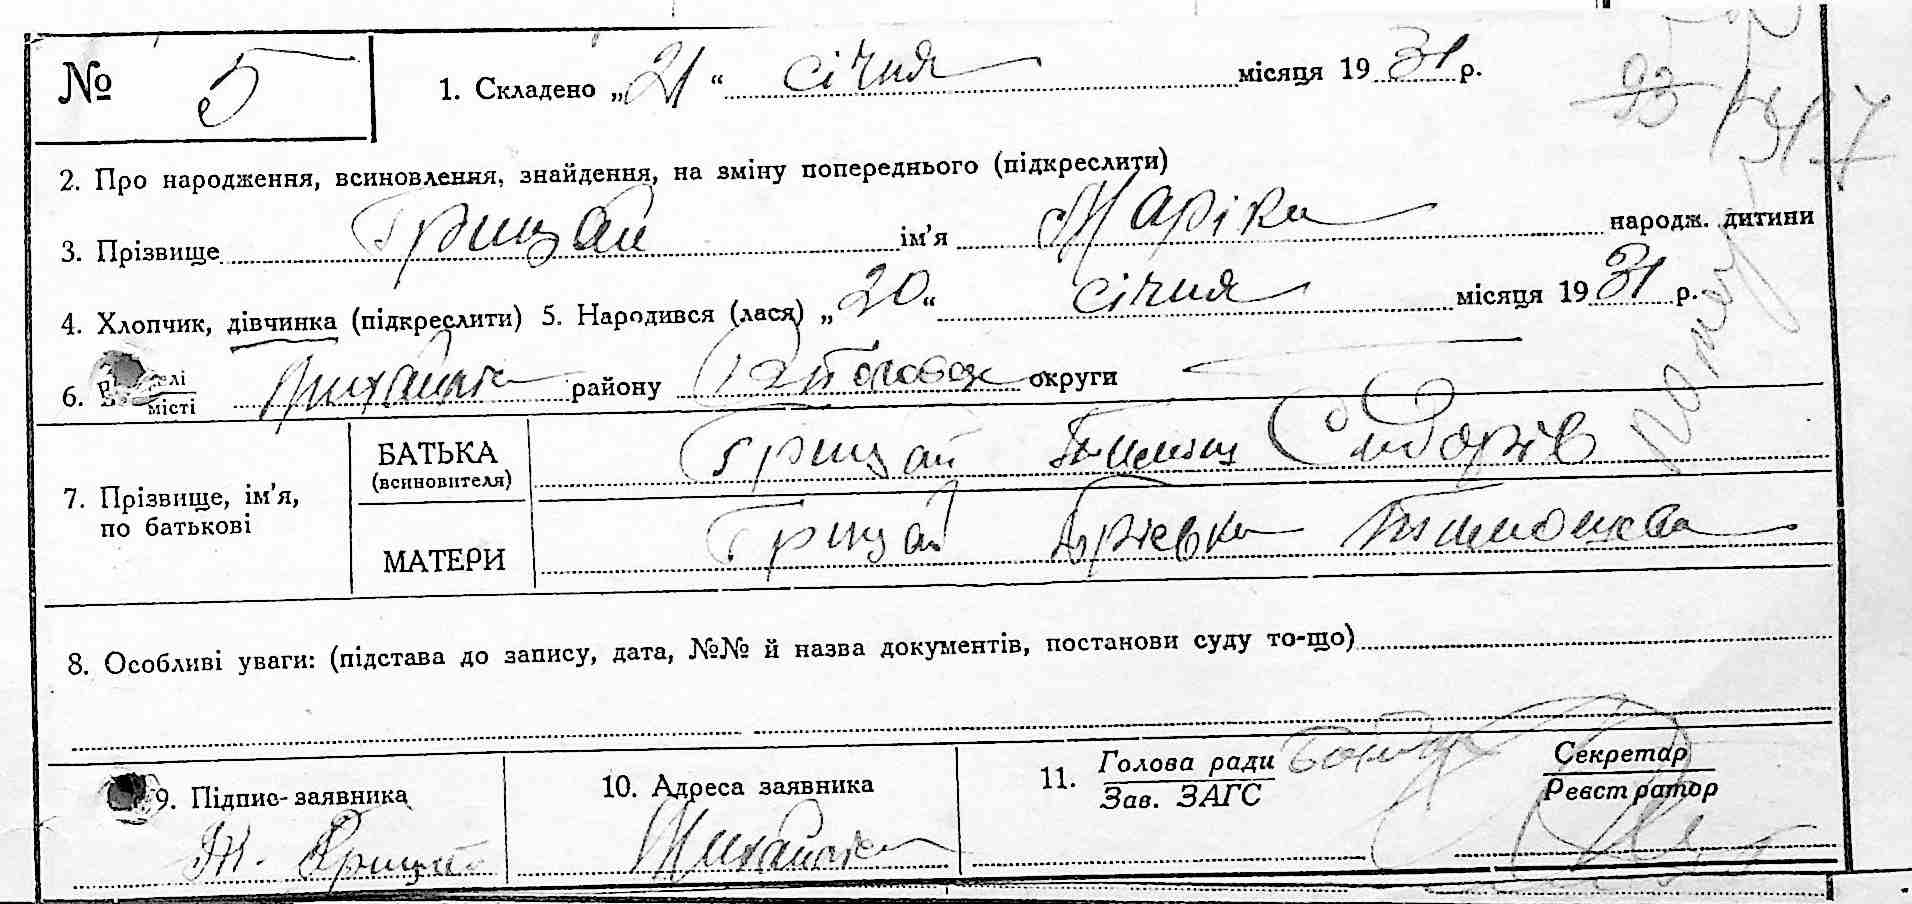 № 5
1. Складено „21“ січня місяця 1931 р.
2. Про народження, всиновлення, знайдення, на зміну попереднього (підкреслити)
3. Прізвище Грицай ім’я Маріка народж. дитини
4. Хлопчик, дівчинка (підкреслити) 5. Народився (лася) „20“ січня місяця 1931 р.
6. селі
місті району округи
7. Прізвище, ім’я,
по батькові
БАТЬКА
(всиновителя)
Грицай Тимош Сидорів
МАТЕРИ
Грицай Тимошева
8. Особливі уваги: (підстава до запису, дата, №№ й назва документів, постанови суду то-що)
9. Підпис-заявника
Т. Грицай
10. Адреса заявника
11. Голова ради
Зав. ЗАГС
Секретар
Реєстратор